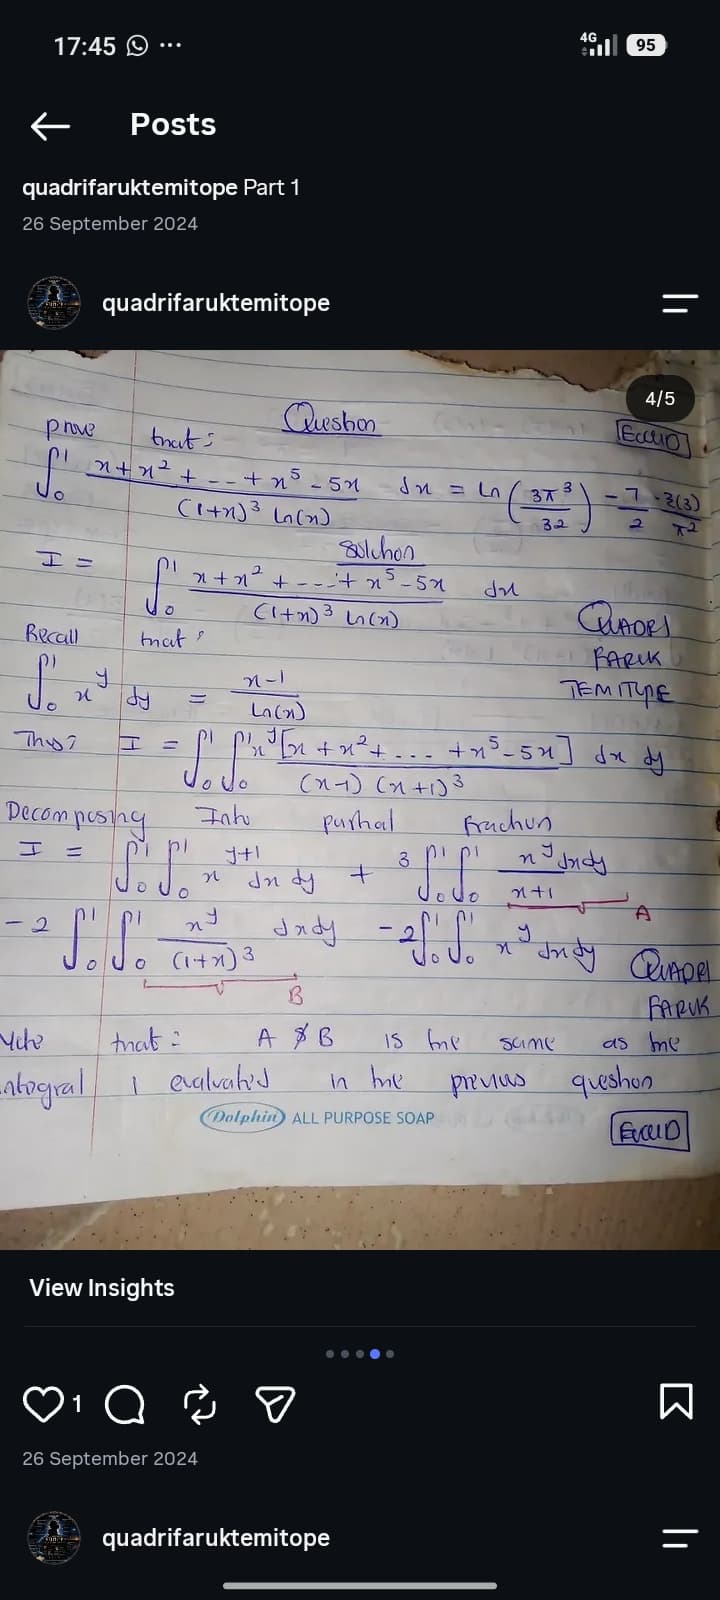 17:45 ...
4G 95
Posts
quadrifaruktemitope Part 1
26 September 2024
quadrifaruktemitope
4/5
Question
prove that:
EUCLID
∫₀¹ x+x²+--+x⁵-5x / (1+x)³ ln(x) dx = Ln(3π³/32) - 7/2 · ζ(3)/π²
Solution
I = ∫₀¹ x+x²+---+x⁵-5x / (1+x)³ ln(x) dx
QUADRI
FARUK
TEMITOPE
Recall that:
∫₀¹ x^y dy = x-1 / Ln(x)
Thus: I = ∫₀¹ ∫₀¹ x^y [x+x²+...+x⁵-5x] / (x-1)(x+1)³ dx dy
Decomposing Into partial fraction
I = ∫₀¹ ∫₀¹ x^(y+1) dx dy + 3 ∫₀¹ ∫₀¹ x^y dxdy / x+1
A
-2 ∫₀¹ ∫₀¹ x^y / (1+x)³ dxdy -2 ∫₀¹ ∫₀¹ x^y dxdy
B
QUADRI
FARUK
that: A & B is the same as the
integral I evaluated in the previous question
Dolphin ALL PURPOSE SOAP
EUCLID
View Insights
1
26 September 2024
quadrifaruktemitope